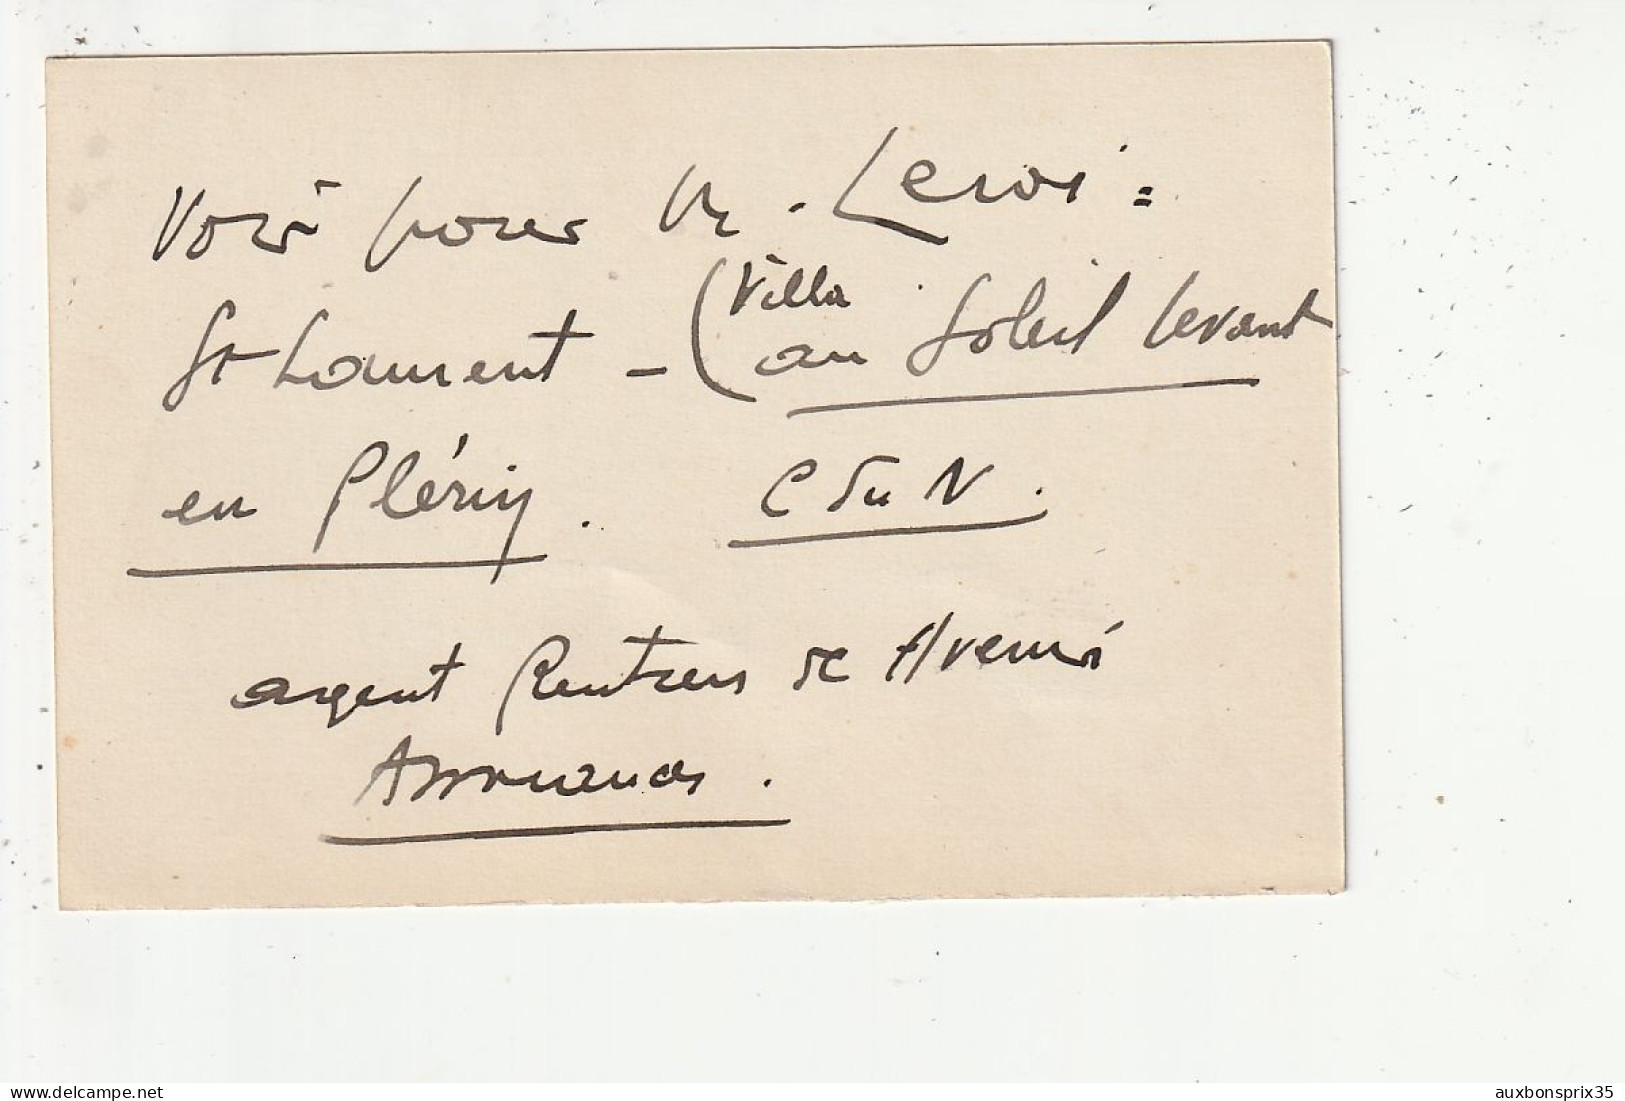 Voir pour M. Leroi =
St Laurent - (Villa
au Soleil levant
en Plérin. C du N.
argent Rentrera de Avenir
Assurances.
www.delcampe.net
auxbonsprix35